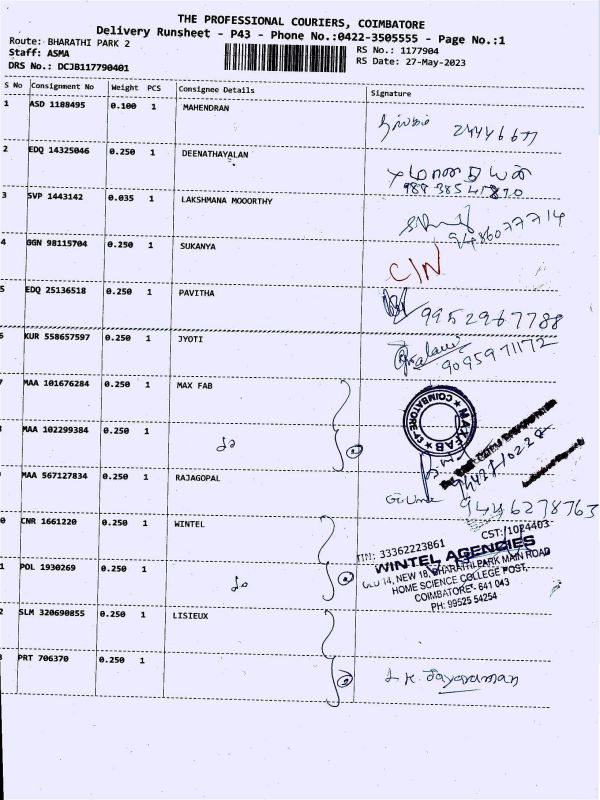 THE PROFESSIONAL COURIERS, COIMBATORE
Delivery Runsheet - P43 - Phone No.:0422-3505555 - Page No.:1
Route: BHARATHI PARK 2
RS No.: 1177904
Staff: ASMA
RS Date: 27-May-2023
DRS No.: DCJB117790401
S No Consignment No Weight PCS Consignee Details Signature
1 ASD 1188495 0.100 1 MAHENDRAN
2 EDQ 14325046 0.250 1 DEENATHAYALAN
3 SVP 1443142 0.035 1 LAKSHMANA MOOORTHY
9486077714
4 GGN 98115704 0.250 1 SUKANYA
C/N
5 EDQ 25136518 0.250 1 PAVITHA
9952967788
6 KUR 558657597 0.250 1 JYOTI
9095971172
7 MAA 101676284 0.250 1 MAX FAB
MAXFAB ★ COIMBATORE
MAA 102299384 0.250 1
do 2
MAA 567127834 0.250 1 RAJAGOPAL
9446278763
0 CNR 1661220 0.250 1 WINTEL
TIN: 33362223861 CST: 1024403
WINTEL AGENCIES
OLD 14, NEW 18, BHARATHI PARK MAIN ROAD
HOME SCIENCE COLLEGE POST,
COIMBATORE - 641 043
PH: 99525 54254
1 POL 1930269 0.250 1
do 2
2 SLM 320690855 0.250 1 LISIEUX
PRT 706370 0.250 1
2
K. Jayaraman